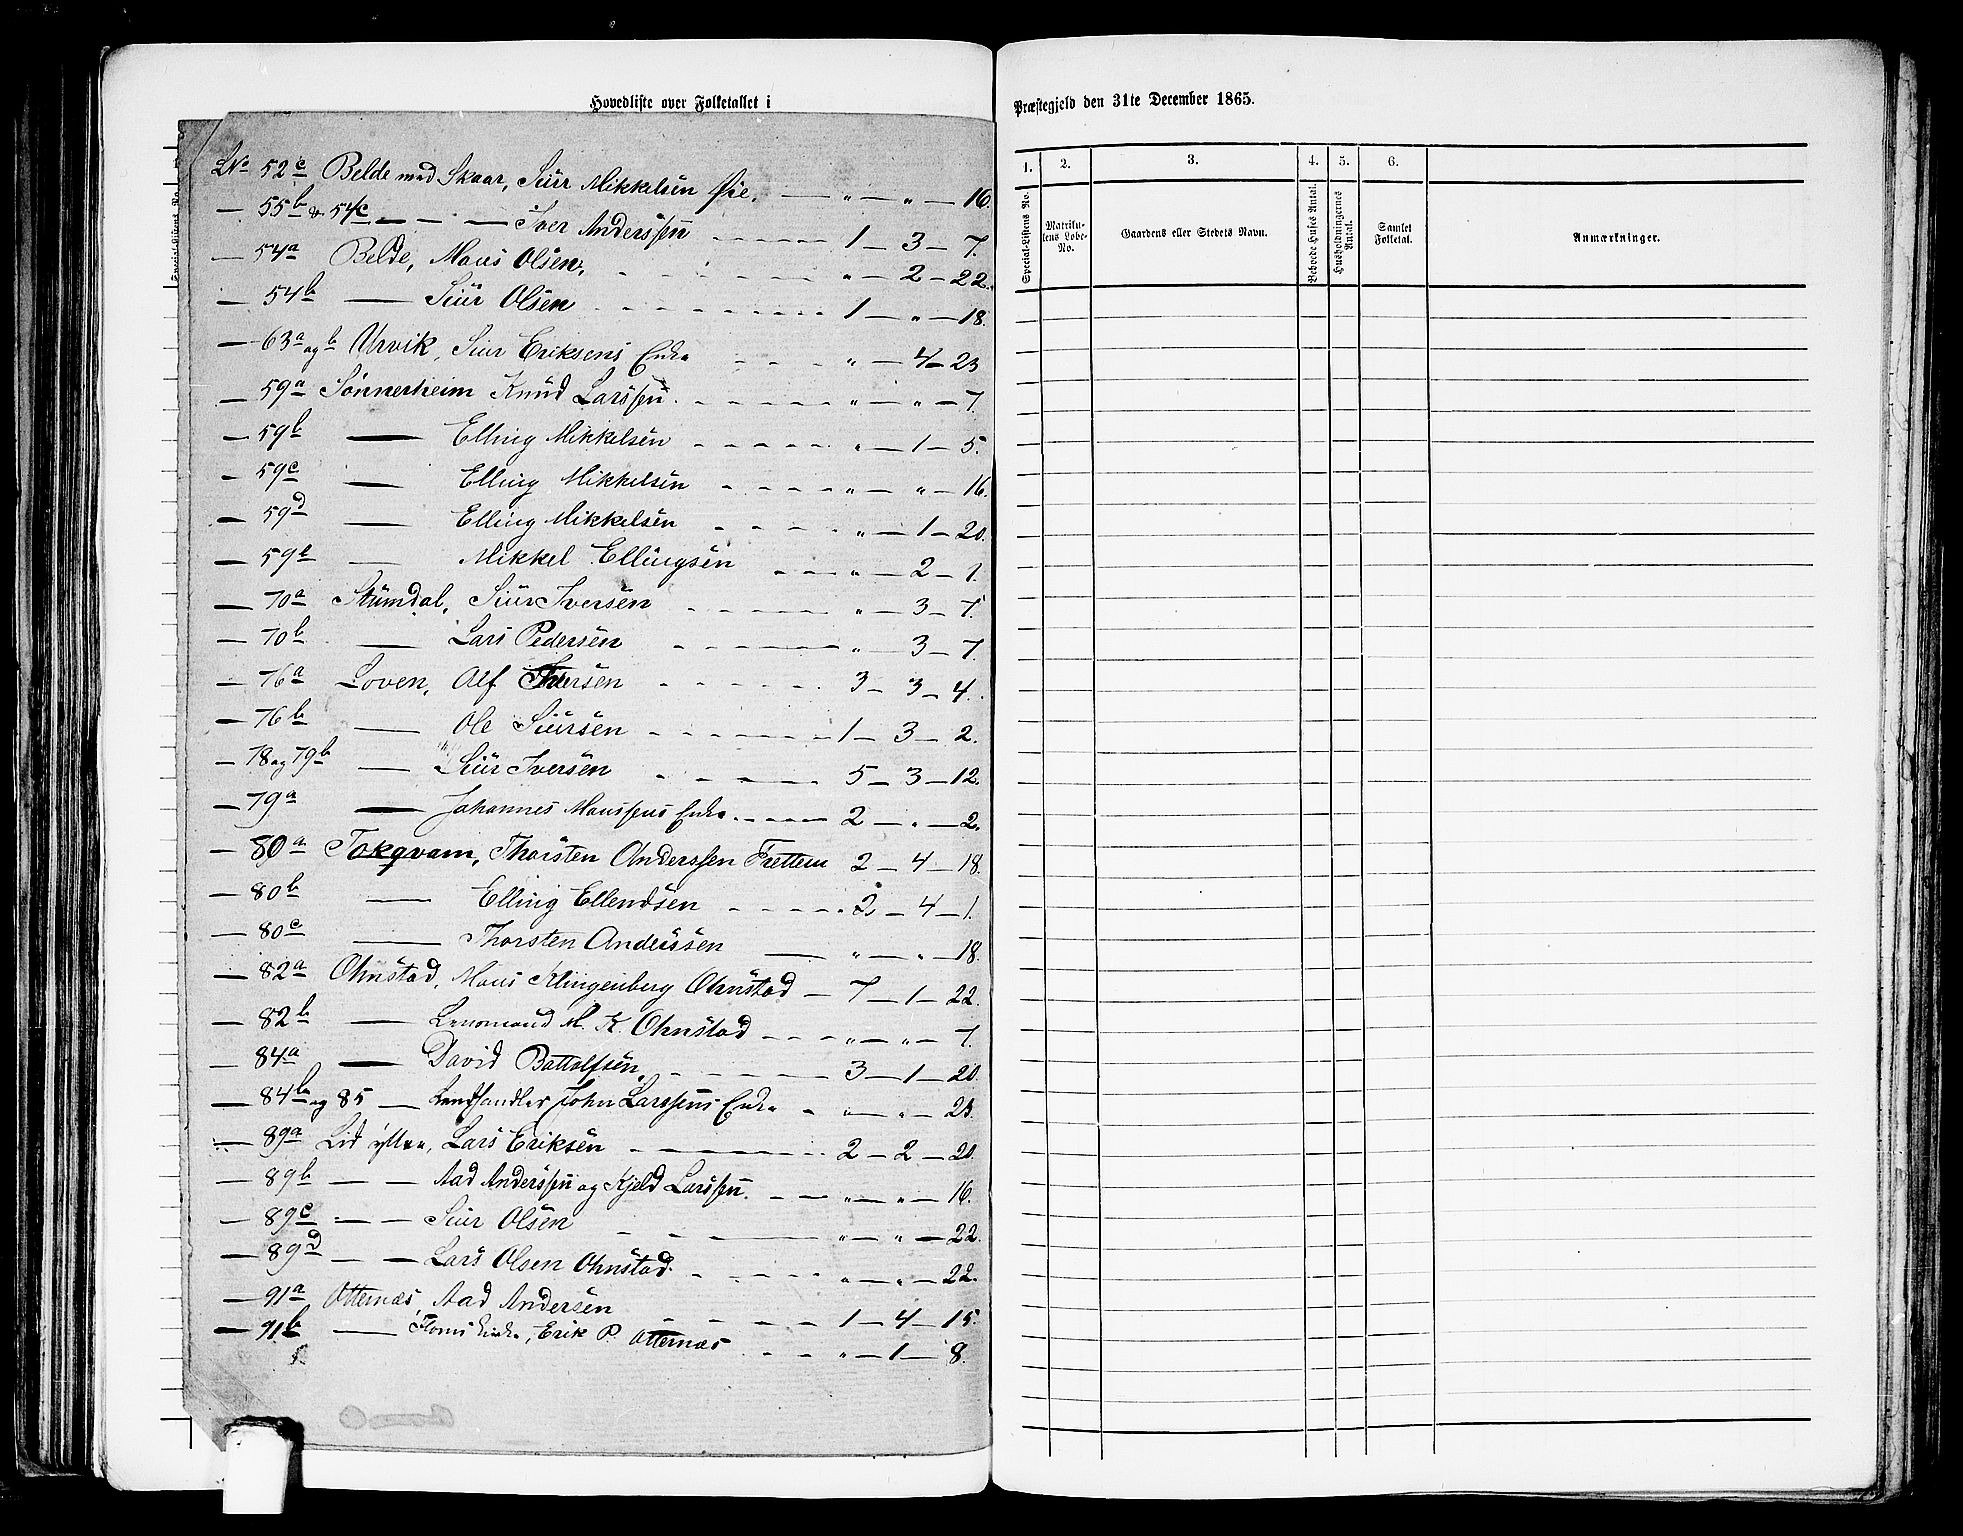 Hovedliste over Folketallet i
LNo 52c Belde med Skaar, Siur Mikkelsen Øie. — „ — „ — 16.
— 55b & 54c — — — Iver Anderssen — 1 — 3 — 7.
— 54a Belde, Mons Olsen, „ — 2 — 22.
— 54b — Siur Olsen 1 — „ — 18.
— 63a og b Urvik, Siur Eriksens Enke „ — 4 — 23
— 59a Sønnerheim Knud Larssen. „ — „ — 7.
— 59b — Elling Mikkelsen „ — 1 — 5.
— 59c — Elling Mikkelsen „ — „ — 16.
— 59d — Elling Mikkelsen „ — 1 — 20.
— 59e — Mikkel Ellingsen „ — 2 — 1.
— 70a Stundal, Siur Iversen „ — 3 — 7.
— 70b — Lars Pedersen „ — 3 — 7.
— 76a Loven, Alf Iversen 3 — 3 — 4.
— 76b — Ole Siursen 1 — 3 — 2.
— 78 og 79b — Siur Iversen 5 — 3 — 12.
— 79a — Johannes Monssens Enke 2 — „ — 2.
— 80a Tokqvam, Thorsten Anderssen Frettem 2 — 4 — 18.
— 80b — Elling Ellendsen 2 — 4 — 1.
— 80c — Thorsten Anderssen — „ — „ — 18.
— 82a Ohnstad, Mons Klingenberg Ohnstad — 7 — 1 — 22.
— 82b — M. K. Ohnstad „ — „ — 7.
— 84a — David Bottolfsen, 3 — 1 — 20.
— 84b og 85 — Landhandler John Larssens Enke „ — „ — 23.
— 89a Lid yttre, Lars Eriksen 2 — 2 — 20.
— 89b — — Aad Anderssen og Kjeld Larssen. „ — „ — 16.
— 89c — — Siur Olsen „ — „ — 22.
— 89d — — Lars Olsen Ohnstad. „ — „ — 22.
— 91a Otternæs, Aad Andersen 1 — 4 — 15.
— 91b — Enke, Erik P. Otternæs „ — 1 — 8.
Præstegjeld den 31te December 1865.
1. 2. 3. 4. 5. 6.
Special-Listens No.
Matriku-
lens Løbe-
No.
Gaardens eller Stedets Navn.
Beboede Huses Antal.
Husholdningernes
Antal.
Samlet
Folketal.
Anmærkninger.